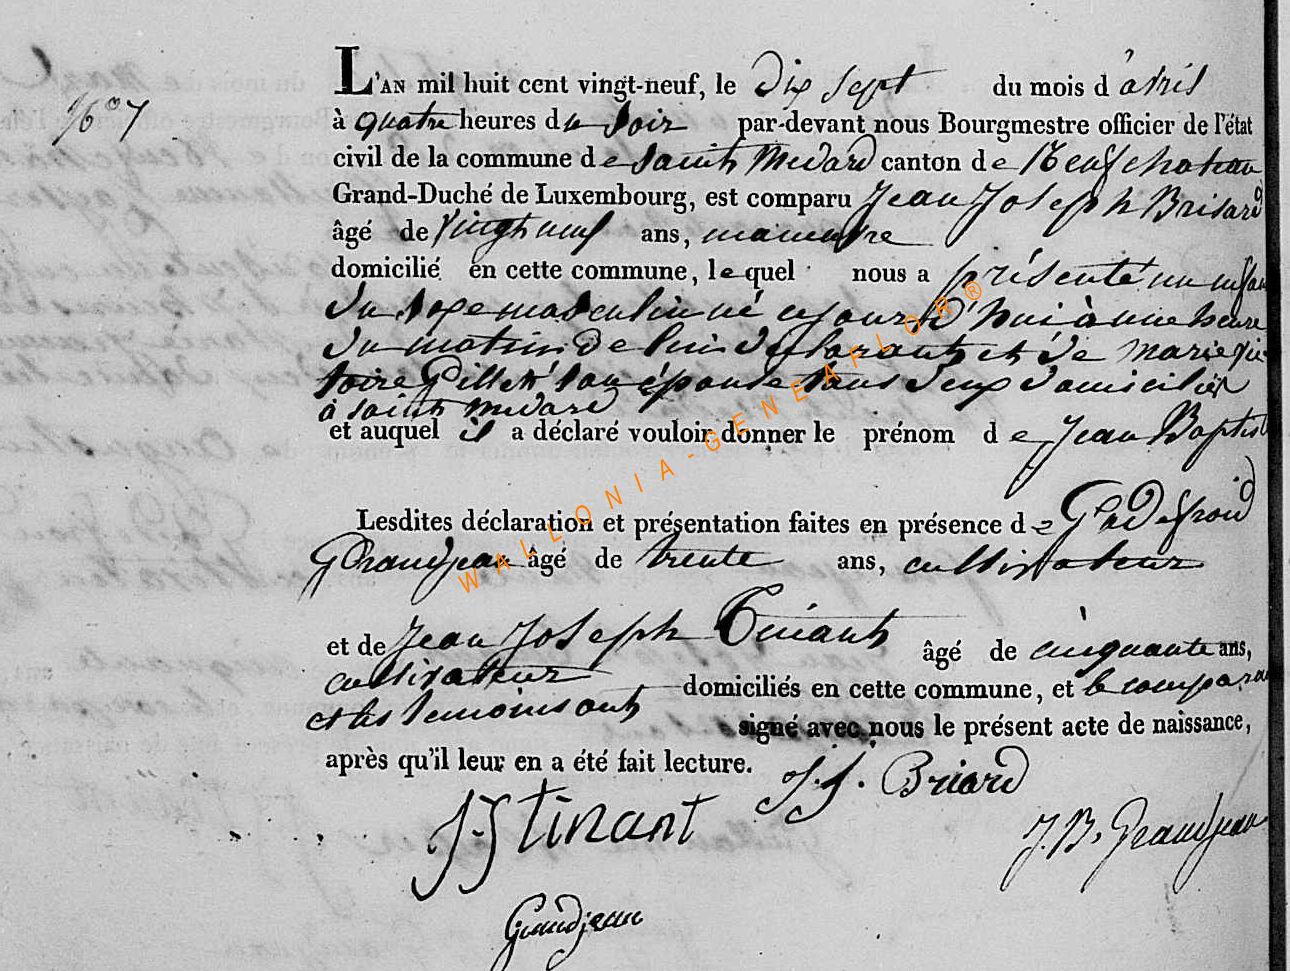 N° 7
L'AN mil huit cent vingt-neuf, le Dix Sept du mois d'avril
à quatre heures du Soir par-devant nous Bourgmestre officier de l'état
civil de la commune de Saint Médard canton de Neufchateau
Grand-Duché de Luxembourg, est comparu Jean Joseph Brisard
âgé de vingt neuf ans, manœuvre
domicilié en cette commune, lequel nous a présenté un enfant
du sexe masculin né cejourd'hui à une heure
du matin de lui déclarant et de Marie Vic-
toire Gillet son épouse tous deux domiciliés
à Saint Médard
et auquel il a déclaré vouloir donner le prénom de Jean Baptist
Lesdites déclaration et présentation faites en présence de Godefroid
Grandjean âgé de trente ans, cultivateur
et de Jean Joseph Tinant âgé de cinquante ans,
cultivateur domiciliés en cette commune, et le comparant
et les temoins ont signé avec nous le présent acte de naissance,
après qu'il leur en a été fait lecture.
J. J. Briard
J J tinant
J. B. Grandjean
Grandjean
WALLONIA-GENEAFLOR®